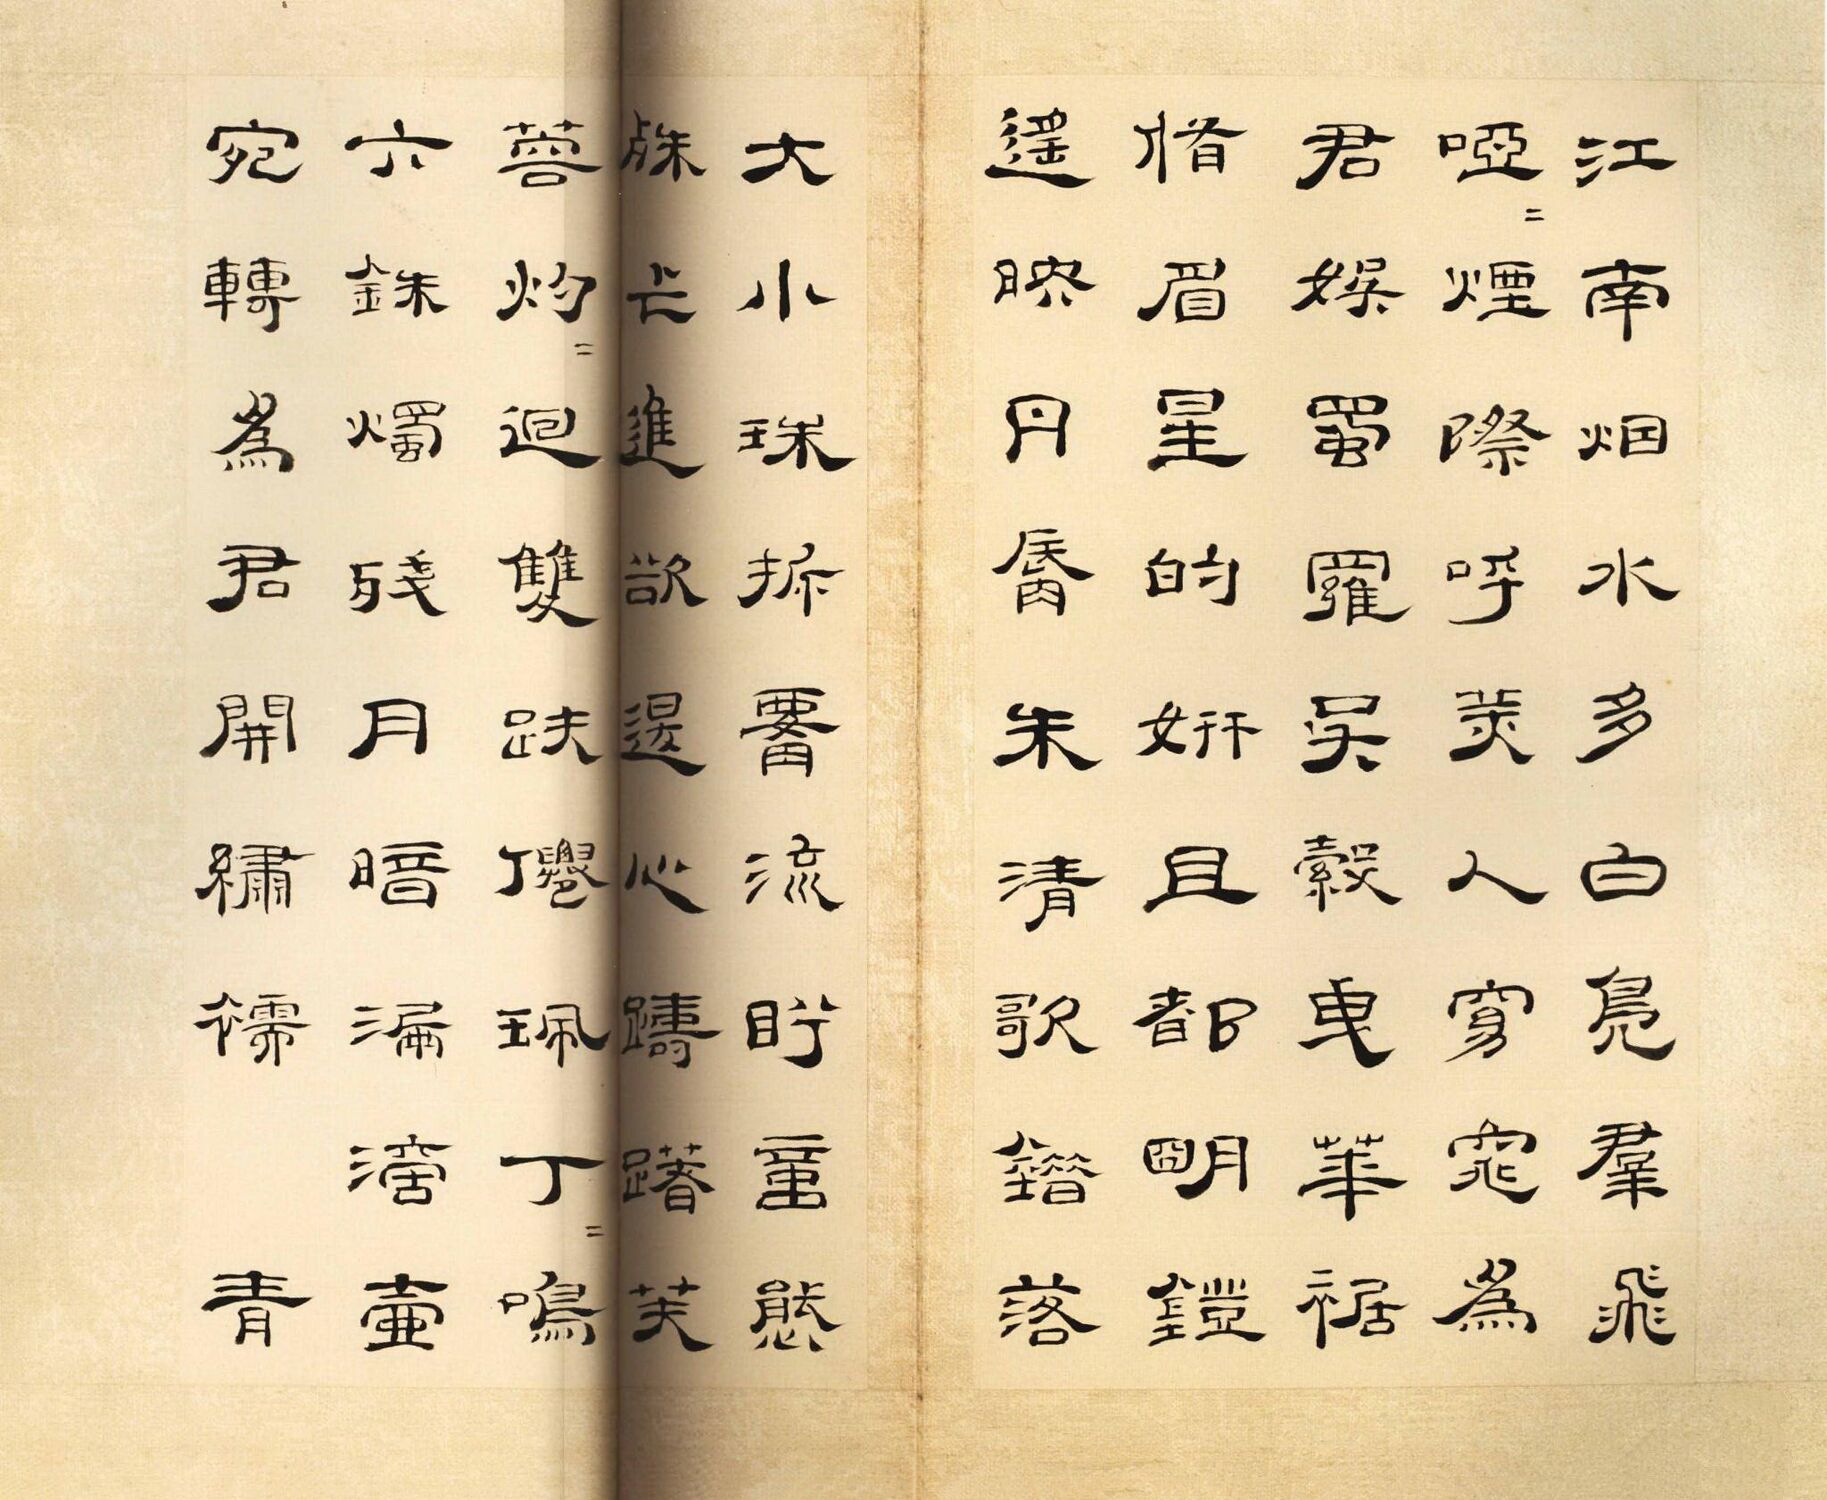 江南烟水多白鳧羣飛
啞二煙際呼美人窈窕為
君娛蜀羅吳縠曳華裾
脩眉星的妍且都明鐙
遥映丹脣朱清歌錯落
大小珠折要流盼童態
殊乍進欲還心躊躇芙
蓉灼二迴雙趺僊珮丁二鳴
六銖燭殘月暗漏滴壺
宛轉為君開繡襦 青